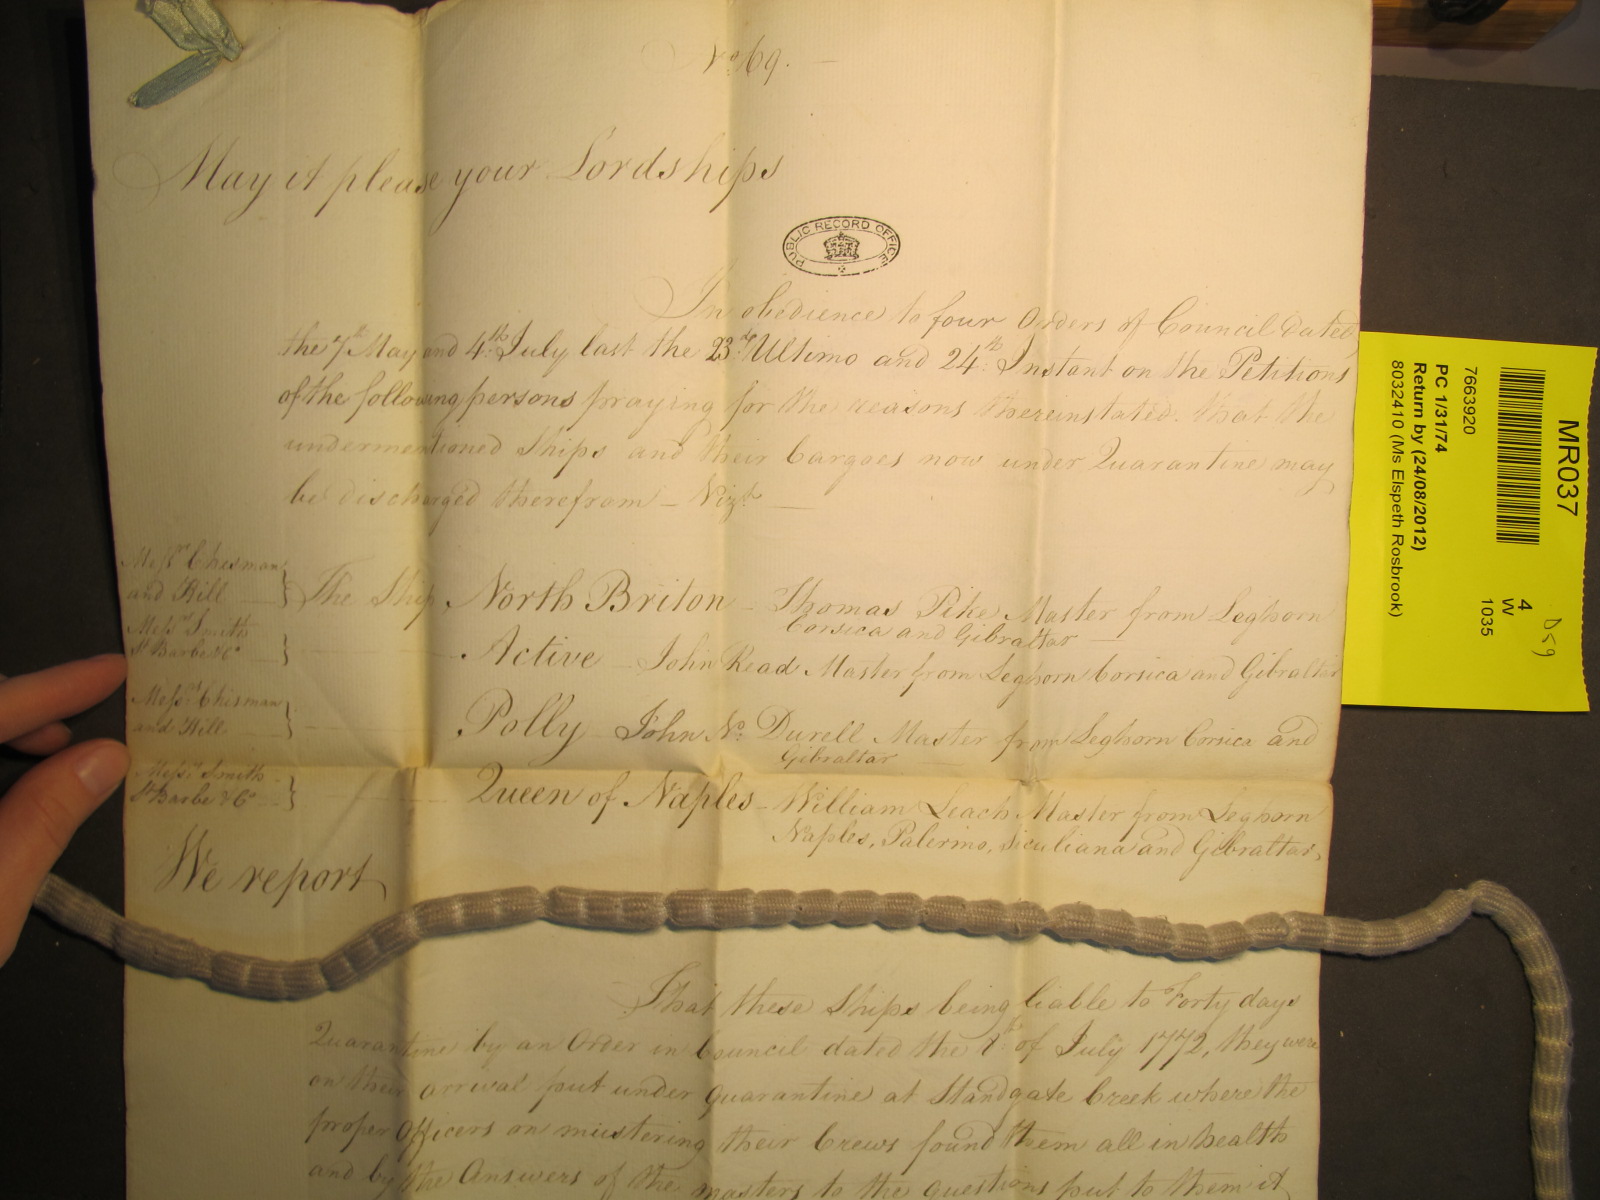 No. 69.
May it please your Lordships
PUBLIC RECORD OFFICE
In obedience to four Orders of Council dated
the 7th May and 4th July last the 23d Ultimo and 24th Instant on the Petitions
of the following persons praying for the reasons therein stated. that the
undermentioned Ships and their Cargoes now under Quarantine may
be discharged therefrom – Vizt. –
Messrs Chisman
and Hill
The Ship North Briton – Thomas Pike Master from Leghorn
Corsica and Gibraltar –
Messrs Smith
St Barbe & Co
Active – John Read Master from Leghorn Corsica and Gibraltar
Messrs Chisman
and Hill
Polly – John No. Durell Master from Leghorn Corsica and
Gibraltar
Messrs Smith
St Barbe & Co
Queen of Naples – William Leach Master from Leghorn
Naples, Palermo, Siculiana and Gibraltar,
We report
That these Ships being liable to Forty days
Quarantine by an Order in Council dated the 1st of July 1772, they were
on their arrival put under quarantine at Standgate Creek where the
proper Officers on mustering their Crews found them all in health
and by the Answers of the masters to the questions put to them it
MR037
4
W
1035
D59
7663920
PC 1/31/74
Return by (24/08/2012)
8032410 (Ms Elspeth Rosbrook)